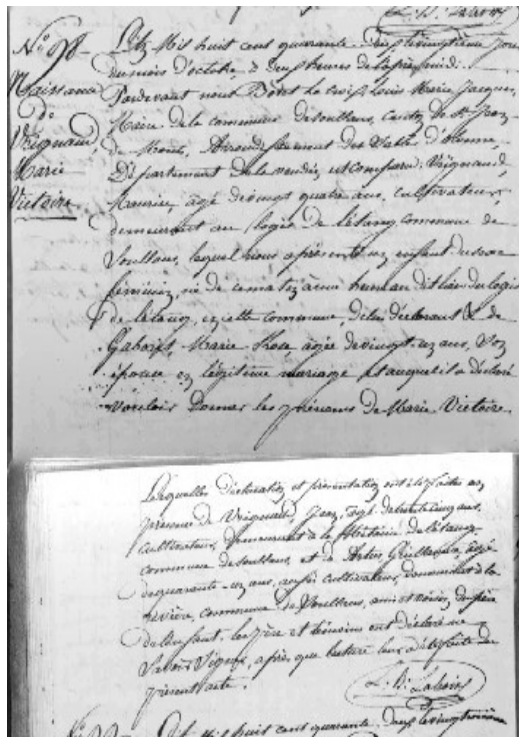 N.° 98
Naissance
de
Vrignaud
Marie
Victoire.
L'an Mil huit cent quarante-deux le vingtième jour
du mois d'octobre à deux heures de l'après midi.
Pardevant nous Louis Marie Jacques,
Maire de la commune de Soullans, canton de St Jean
de Monts, Arrondissement des Sables d'olonne,
Département de la vendée, est comparu Vrignaud,
Maurice, agé de vingt quatre ans, cultivateur,
demeurant au logis de l'étang commune de
Soullans, lequel nous a présenté un enfant du sexe
féminin, né de ce matin à une heure au dit lieu du logis
de l'étang, en cette commune, de lui déclarant & de
Gaborit, Marie Rose, agée de vingt-un ans, son
épouse en légitime mariage, et auquel il a déclaré
vouloir donner les prénoms de Marie Victoire.
Lesquelles déclaration et présentation ont été faites en
présence de Vrignaud, Jean, agé de trente cinq ans,
cultivateur, demeurant à la Métairie de l'étang
commune de Soullans, et de Artus Guillaume, agé
de quarante-un ans, aussi cultivateur, demeurant à la
rivière, commune de Soullans, amis et voisins du père
de l'enfant. Les père et témoins ont déclaré ne
savoir signer, après que lecture leur a été faite du
présent acte.
L'an Mil huit cent quarante-deux le vingtième